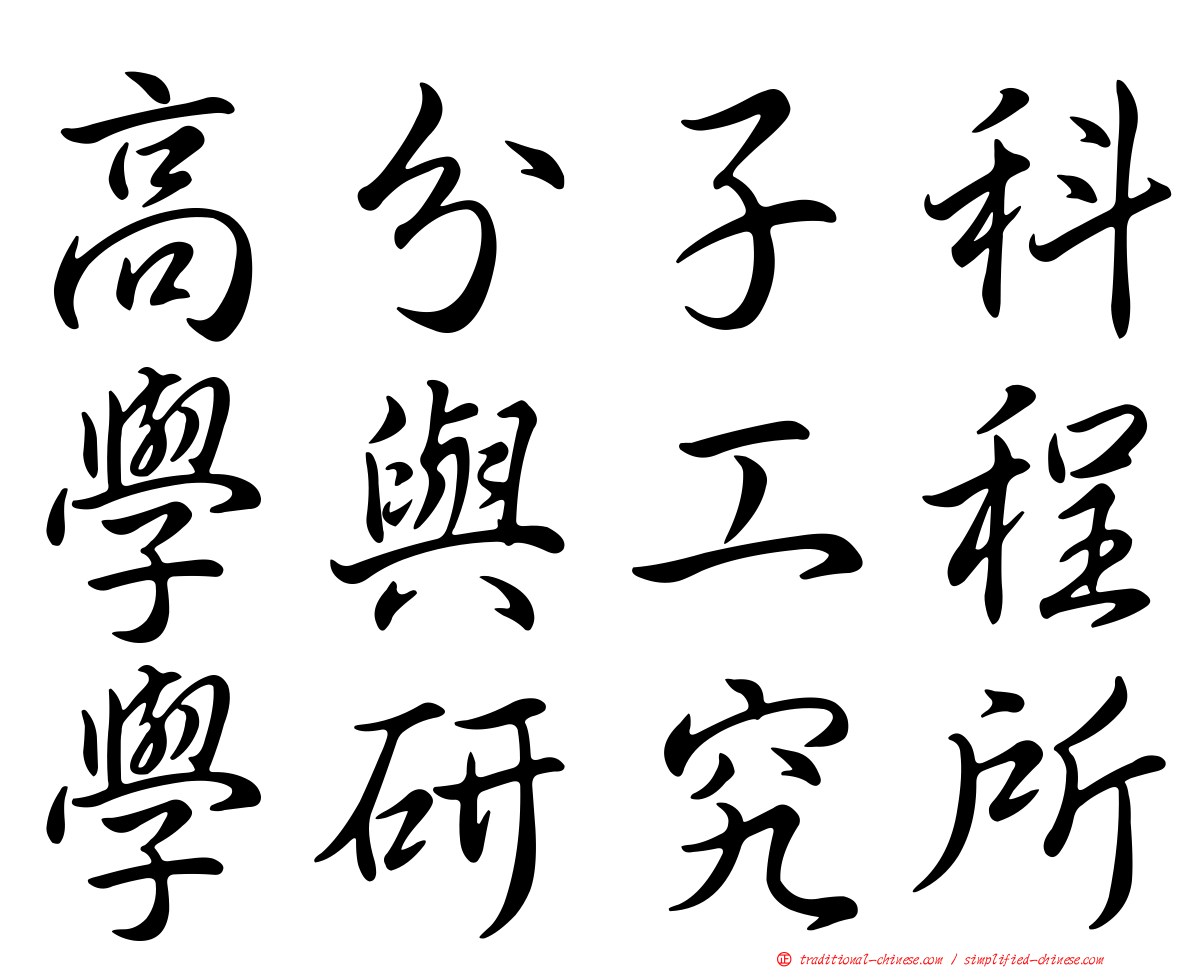 高分子科
學與工程
學研究所
正 traditional-chinese.com / simplified-chinese.com